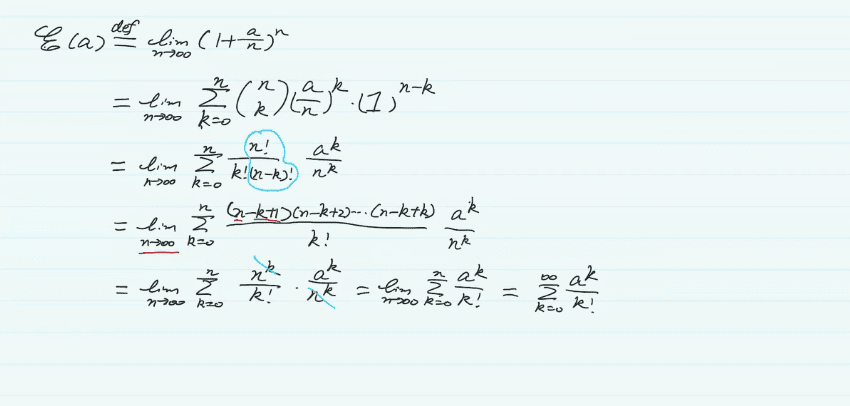 ℰ(a) ≝ lim_{n→∞} (1+a/n)^n
= lim_{n→∞} Σ_{k=0}^{n} (n k) (a/n)^k · (1)^{n-k}
= lim_{n→∞} Σ_{k=0}^{n} n!/(k!(n-k)!) a^k/n^k
= lim_{n→∞} Σ_{k=0}^{n} (n-k+1)(n-k+2)···(n-k+k)/k! a^k/n^k
= lim_{n→∞} Σ_{k=0}^{n} n^k/k! · a^k/n^k = lim_{n→∞} Σ_{k=0}^{n} a^k/k! = Σ_{k=0}^{∞} a^k/k!